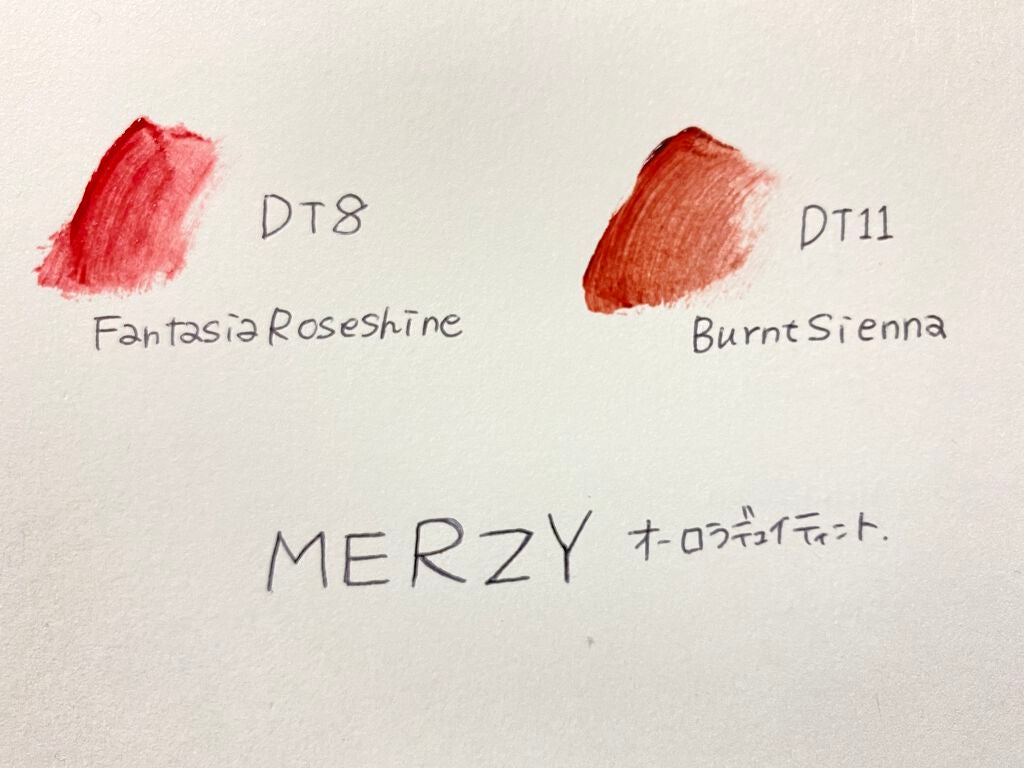 DT8
Fantasia Roseshine
DT11
Burnt Sienna
MERZY オーロラデュイティント.